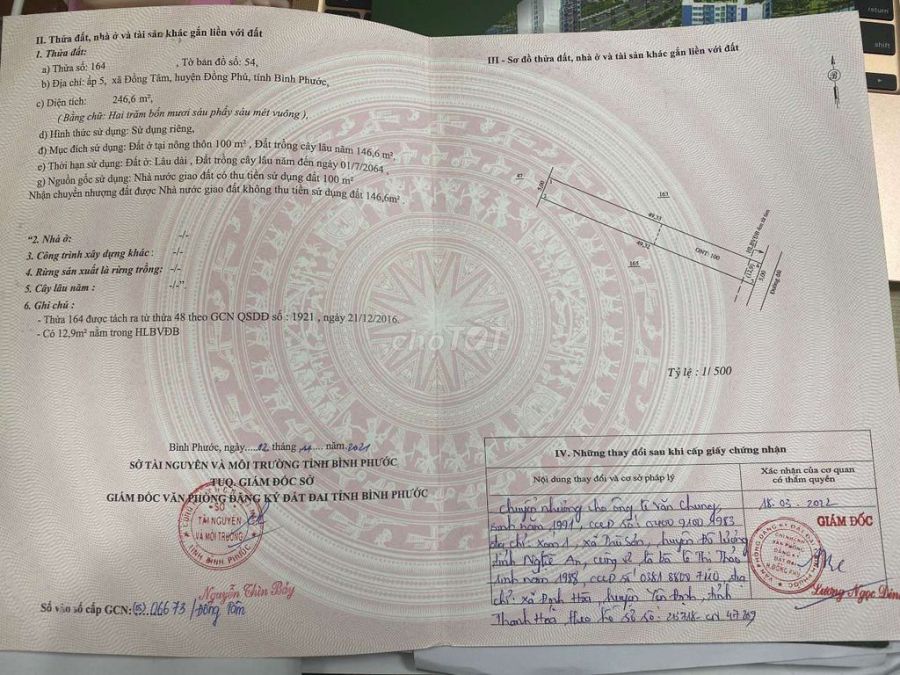 II. Thửa đất, nhà ở và tài sản khác gắn liền với đất
1. Thửa đất:
a) Thửa số: 164 , Tờ bản đồ số: 54,
b) Địa chỉ: ấp 5, xã Đồng Tâm, huyện Đồng Phú, tỉnh Bình Phước,
c) Diện tích: 246,6 m²,
( Bằng chữ: Hai trăm bốn mươi sáu phẩy sáu mét vuông ),
d) Hình thức sử dụng: Sử dụng riêng,
đ) Mục đích sử dụng: Đất ở tại nông thôn 100 m² , Đất trồng cây lâu năm 146,6 m²,
e) Thời hạn sử dụng: Đất ở: Lâu dài , Đất trồng cây lâu năm đến ngày 01/7/2064 ,
g) Nguồn gốc sử dụng: Nhà nước giao đất có thu tiền sử dụng đất 100 m²
Nhận chuyển nhượng đất được Nhà nước giao đất không thu tiền sử dụng đất 146,6m² .
"2. Nhà ở: -/-
3. Công trình xây dựng khác : -/-
4. Rừng sản xuất là rừng trồng: -/-
5. Cây lâu năm : -/-".
6. Ghi chú :
- Thửa 164 được tách ra từ thửa 48 theo GCN QSDĐ số : 1921 , ngày 21/12/2016.
- Có 12,9m² nằm trong HLBVĐB
choTỐT
Bình Phước, ngày.....02 tháng .... năm.2021
SỞ TÀI NGUYÊN VÀ MÔI TRƯỜNG TỈNH BÌNH PHƯỚC
TUQ. GIÁM ĐỐC SỞ
GIÁM ĐỐC VĂN PHÒNG ĐĂNG KÝ ĐẤT ĐAI TỈNH BÌNH PHƯỚC
SỞ
TÀI NGUYÊN
VÀ MÔI TRƯỜNG
TỈNH BÌNH PHƯỚC
Nguyễn Thìn Bảy
Số vào sổ cấp GCN: 06673/Đồng Tâm
III - Sơ đồ thửa đất, nhà ở và tài sản khác gắn liền với đất
87
5.00
163
49.33
49.32
165
ONT: 100
5.00
Đường đất
Tỷ lệ : 1/ 500
IV. Những thay đổi sau khi cấp giấy chứng nhận
Nội dung thay đổi và cơ sở pháp lý
Xác nhận của cơ quan
có thẩm quyền
Chuyển nhượng cho ông Lê Văn Chung,
sinh năm 1991, CCCD số:
địa chỉ: xóm 1, xã huyện Đô Lương,
tỉnh Nghệ An, cùng vợ là bà Lê Thị Thảo
sinh năm 1988, CCCD số địa
chỉ: xã Định Hòa, huyện Yên Định, tỉnh
Thanh Hóa, theo hồ sơ số:
18-03-2022
GIÁM ĐỐC
CHI NHÁNH
VĂN PHÒNG
ĐĂNG KÝ
ĐẤT ĐAI
H.ĐỒNG PHÚ
Lương Ngọc
return
shift